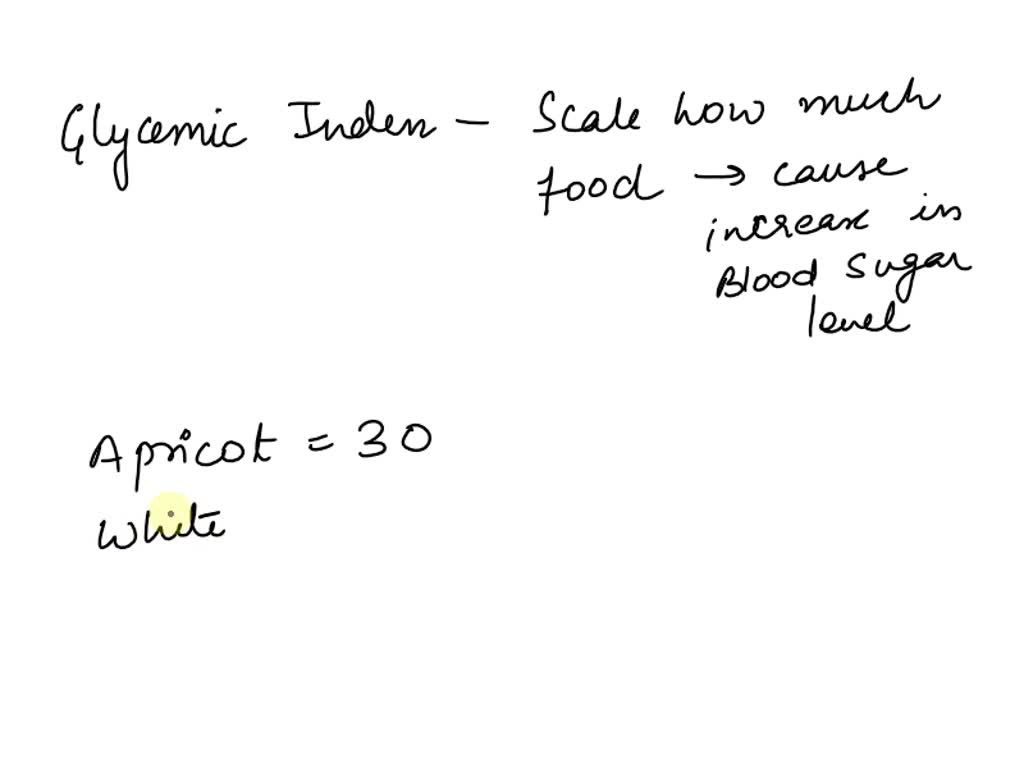 Glycemic Index - Scale how much
food → cause
increase in
Blood sugar
level
Apricot = 30
White